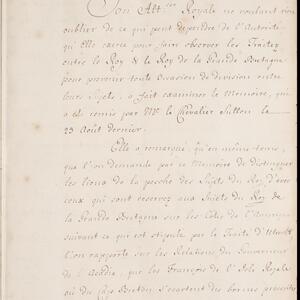 Son Alt.sse Royale ne voulant rien
oublier de ce qui peut dependre de l'Autorité
qu'Elle exerce pour faire observer les Traitez
entre le Roy & le Roy de la Grande Bretagne
pour prevenir toute Occasion de division entre
leurs Sujets, a fait examiner le Memoire, qui
a eté remis par Mr. le Chevalier Sutton le
23 Août dernier.
Elle a remarqué qu'en même tems,
que l'on demande par ce Memoire de distinguer
les lieux de la pesche des Sujets du Roy d'avec
ceux qui sont reservez aux Sujets du Roy de
la Grande Bretagne sur les Côtes de l'Amerique
suivant ce qui est stipulé par le Traité d'Utrecht
l'on rapporte sur les Relations du Gouverneur
de l'Acadie, que les François de l'Isle Royale
ou du Cap Breton s'ecartent des bornes prescrites